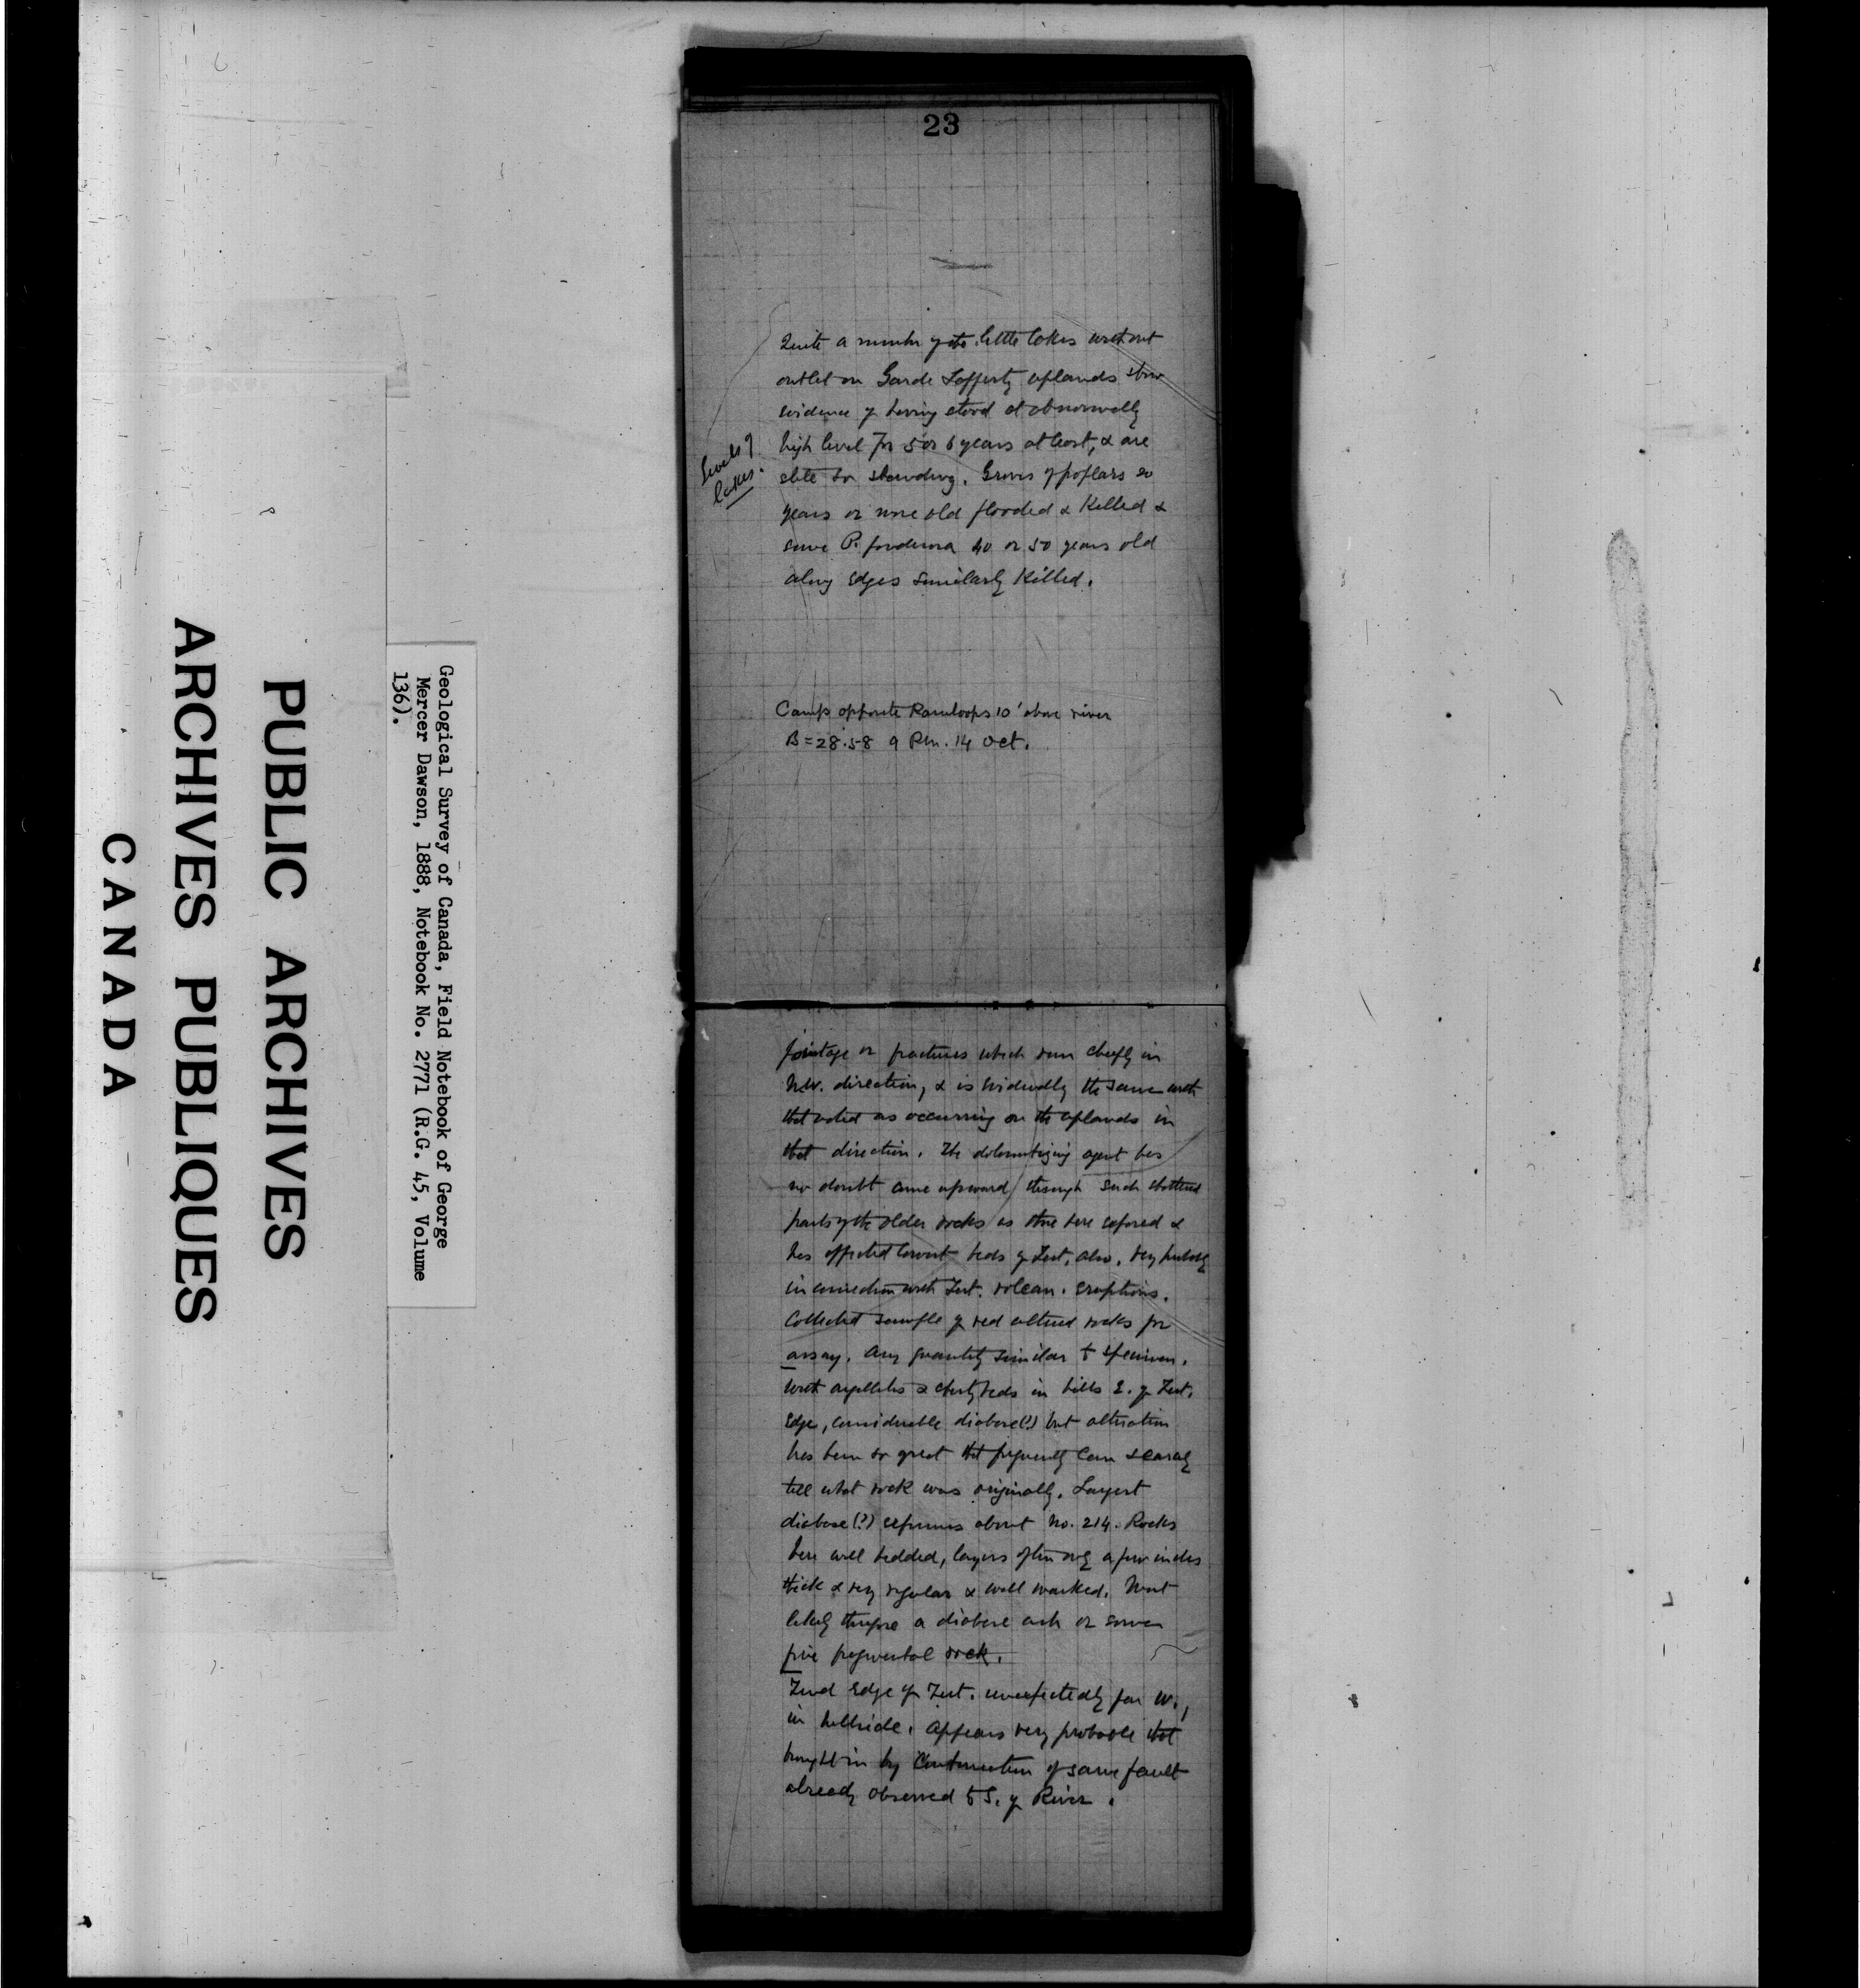 23
Quite a number of the little lakes without
outlet on Garde Lafferty uplands show
evidence of having stood at abnormally
high level for 5 or 6 years at least, & are
still so standing. Groves of poplars 20
years or more old flooded & killed &
some P. ponderosa 40 or 50 years old
along edges similarly killed.
levels of
lakes.
Camp opposite Kamloops 10' above river
B = 28.58 9 P.m. 14 Oct.
jointage or fractures which run chiefly in
N.W. direction, & is evidently the same with
that noted as occurring on the uplands in
that direction. The dolomitizing agent has
no doubt come upward through such shattered
parts of the older rocks as those here exposed &
has affected lowest beds of Tert. also. Very probably
in connection with Tert. volcan. eruptions.
Collected sample of red altered rocks for
assay. Any quantity similar to specimen.
With argillites & cherty beds in hills E. of Tert.
edge, considerable diabase(?) but alteration
has been so great that frequently can scarcely
tell what rock was originally. Largest
diabase(?) exposures about No. 214. Rocks
here well bedded, layers often only a few inches
thick & very regular & well marked. Most
likely therefore a diabase ash or some
fine fragmental rock.
Find edge of Tert. unexpectedly far W.,
in hillside. Appears very probable that
brought in by continuation of same fault
already observed to S. of River.
Geological Survey of Canada, Field Notebook of George
Mercer Dawson, 1888, Notebook No. 2771 (R.G. 45, Volume
136).
PUBLIC ARCHIVES
ARCHIVES PUBLIQUES
CANADA